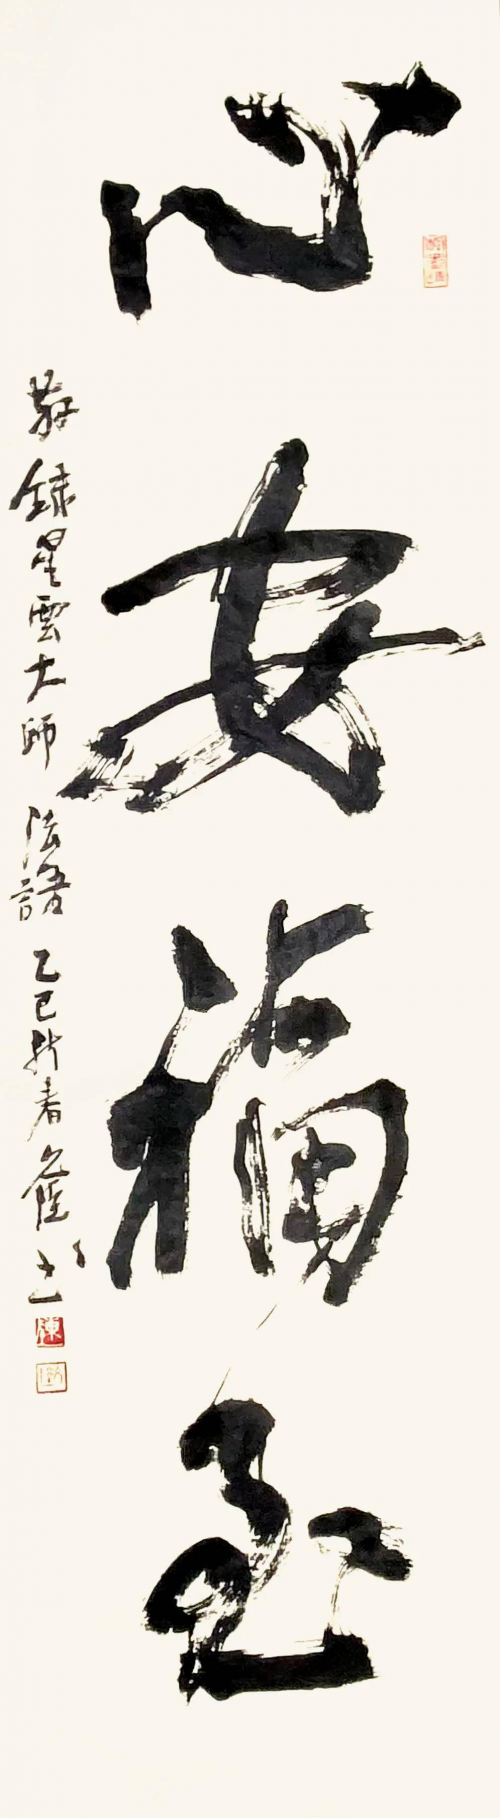 心安福至
敬錄星雲大師法語 乙巳新春